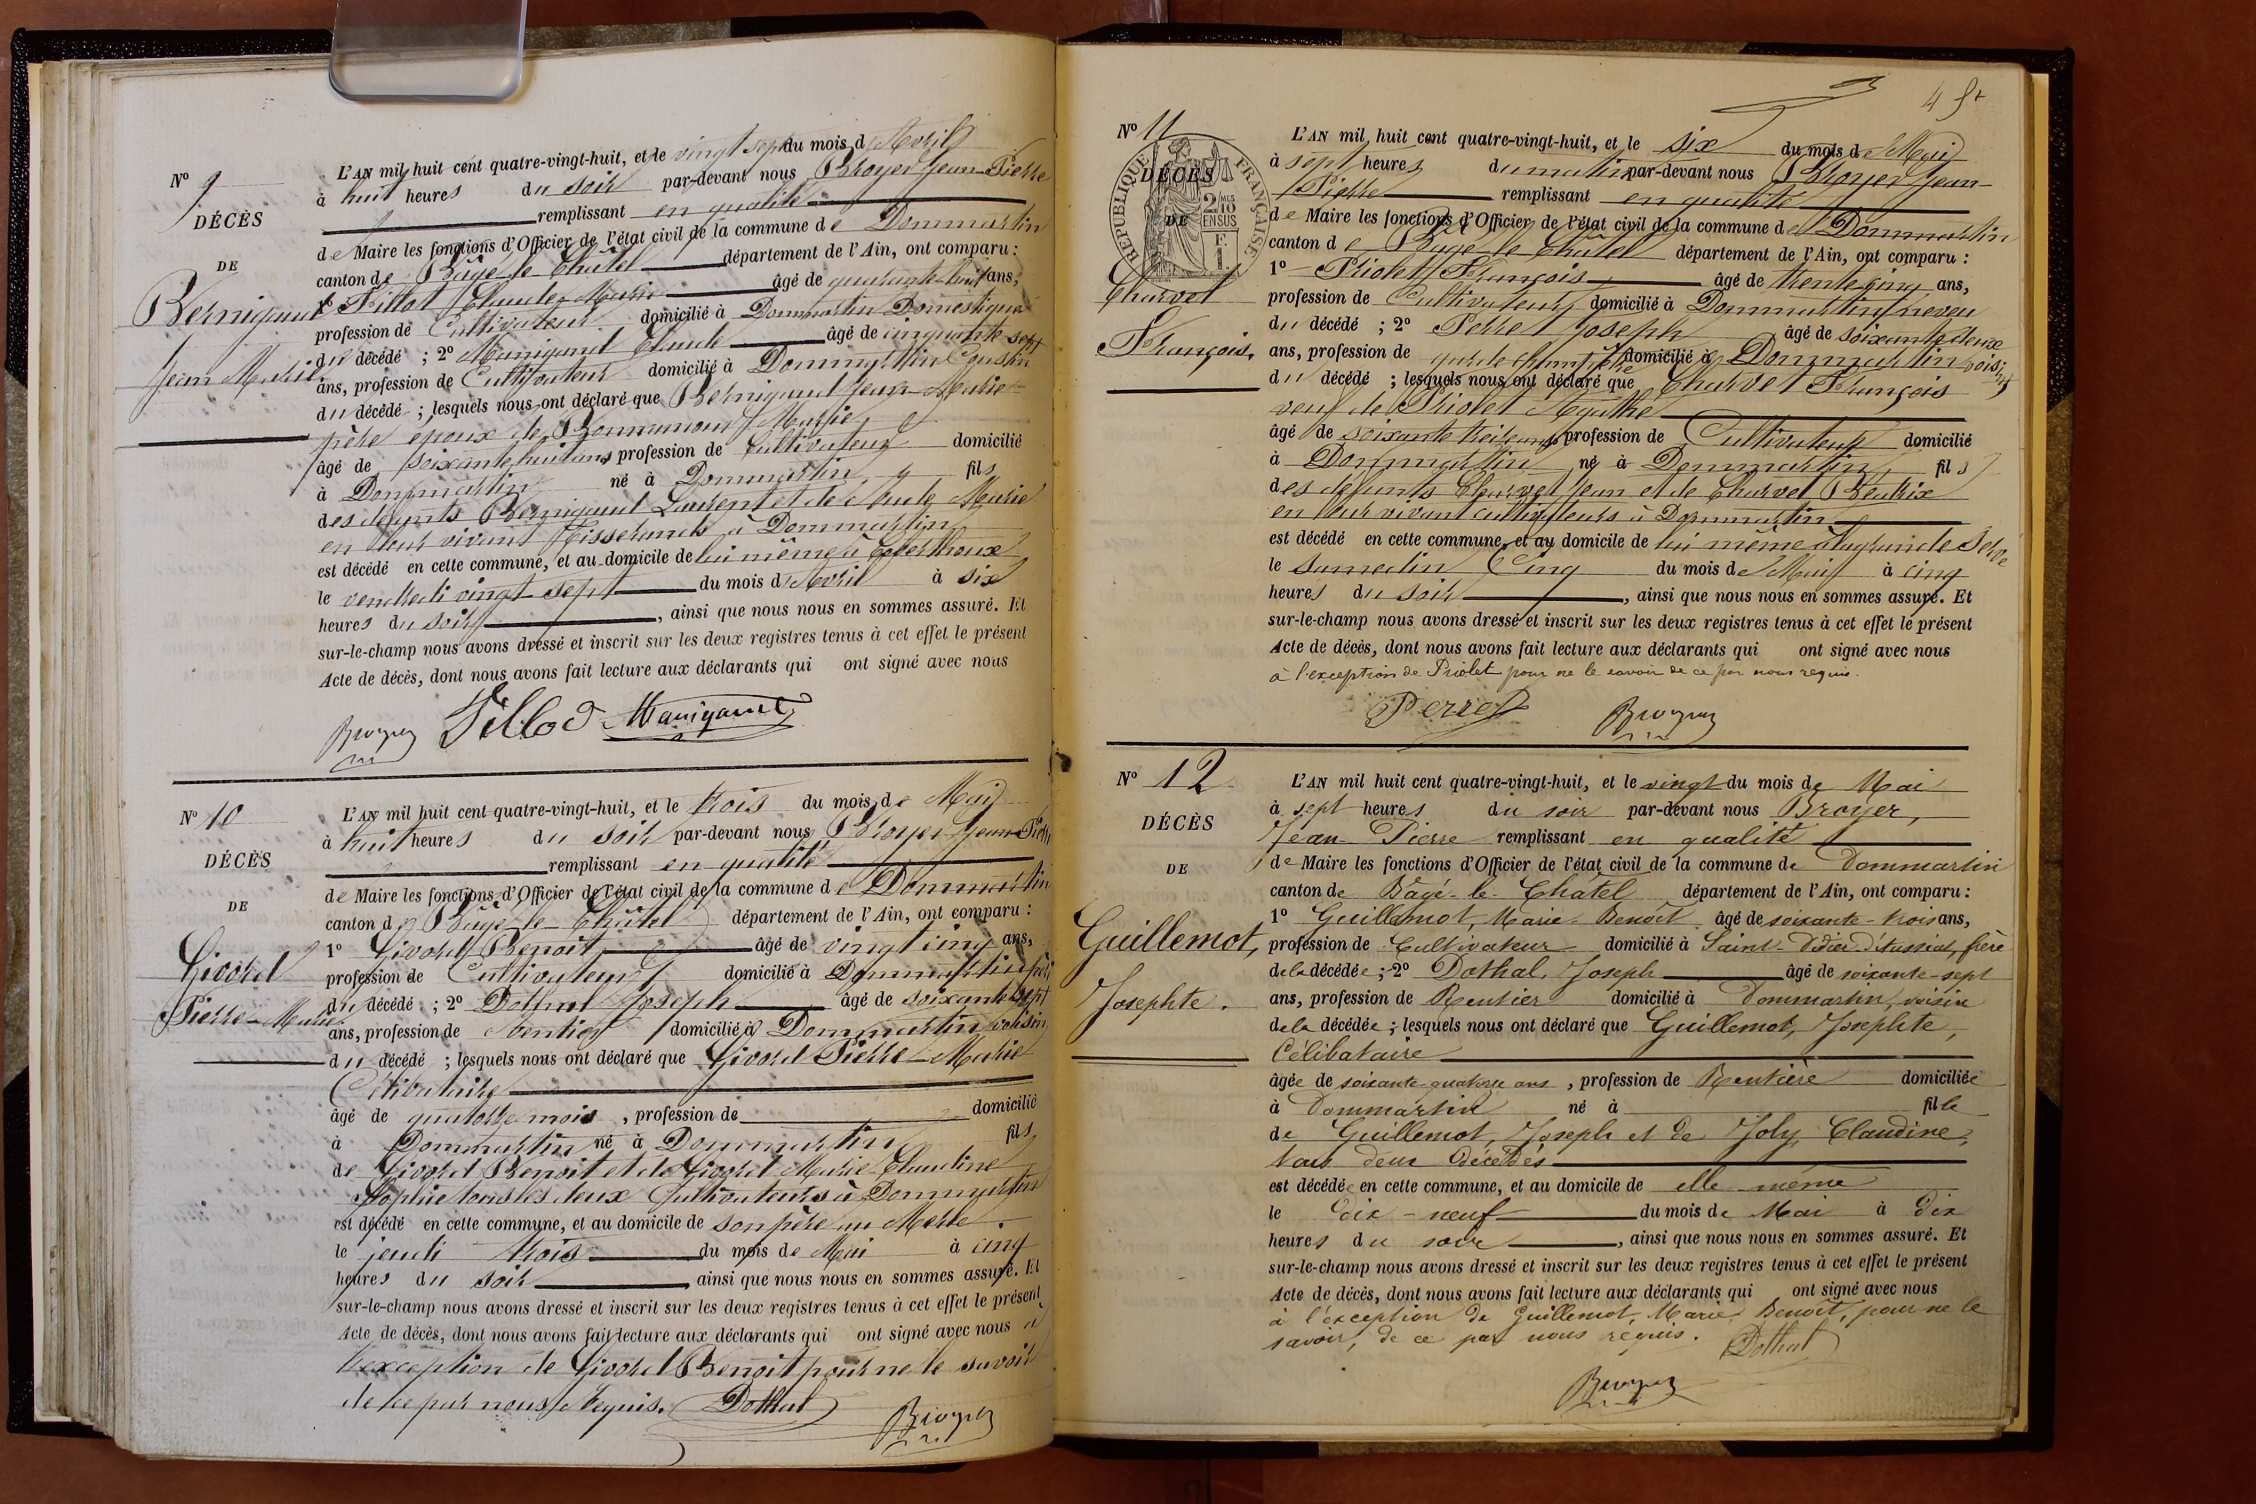 Nº 9
DÉCÈS
DE
Bernigaud
Jean Marie
L'AN mil huit cent quatre-vingt-huit, et le vingt sept du mois d'Avril
à huit heures du soir par-devant nous Broyer Jean-Pierre
remplissant en qualité
de Maire les fonctions d'Officier de l'état civil de la commune de Dommartin
canton de Bâgé-le-Châtel département de l'Ain, ont comparu :
1º Tillot Claude-Marie âgé de quarante-huit ans,
profession de Cultivateur domicilié à Dommartin Domestique
du décédé ; 2º Manigand Claude âgé de cinquante sept
ans, profession de Cultivateur domicilié à Dommartin Cousin
du décédé ; lesquels nous ont déclaré que Bernigaud Jean-Marie
père époux de Bonnamour Marie
âgé de soixante huit ans, profession de Cultivateur domicilié
à Dommartin né à Dommartin fils
des défunts Bernigaud Laurent et de Marie
en leur vivant Tisserands à Dommartin
est décédé en cette commune, et au domicile de lui même à
le vendredi vingt-sept du mois d'Avril à six
heures du soir, ainsi que nous nous en sommes assuré. Et
sur-le-champ nous avons dressé et inscrit sur les deux registres tenus à cet effet le présent
Acte de décès, dont nous avons fait lecture aux déclarants qui ont signé avec nous
Broyer Tillod Manigand
Nº 10
DÉCÈS
DE
Givord
Pierre-Marie
L'AN mil huit cent quatre-vingt-huit, et le trois du mois de Mai
à huit heures du soir par-devant nous Broyer Jean-Pierre
remplissant en qualité
de Maire les fonctions d'Officier de l'état civil de la commune de Dommartin
canton de Bâgé-le-Châtel département de l'Ain, ont comparu :
1º Givord Benoit âgé de vingt cinq ans,
profession de Cultivateur domicilié à Dommartin père
du décédé ; 2º Dothal Joseph âgé de soixante sept
ans, profession de rentier domicilié à Dommartin voisin
du décédé ; lesquels nous ont déclaré que Givord Pierre-Marie
Célibataire
âgé de quatorze mois, profession de domicilié
à Dommartin né à Dommartin fils
de Givord Benoit et de Givord Marie-Claudine
Sophie tous les deux Cultivateurs à Dommartin
est décédé en cette commune, et au domicile de son père au Merle.
le jeudi trois du mois de Mai à cinq
heures du soir, ainsi que nous nous en sommes assuré. Et
sur-le-champ nous avons dressé et inscrit sur les deux registres tenus à cet effet le présent
Acte de décès, dont nous avons fait lecture aux déclarants qui ont signé avec nous à
l'exception de Givord Benoit pour ne le savoir
de ce par nous requis. Dothal
Broyer
45
Nº 11
RÉPUBLIQUE FRANÇAISE
2/10 EN SUS
DÉCÈS
DE
Charvet
François.
L'AN mil huit cent quatre-vingt-huit, et le six du mois de Mai
à sept heures du matin par-devant nous Broyer Jean-
Pierre remplissant en qualité
de Maire les fonctions d'Officier de l'état civil de la commune de Dommartin
canton de Bâgé le Châtel département de l'Ain, ont comparu :
1º Priolet François âgé de trente cinq ans,
profession de Cultivateur domicilié à Dommartin neveu
du décédé ; 2º Perret Joseph âgé de soixante deux
ans, profession de garde champêtre domicilié à Dommartin voisin
du décédé ; lesquels nous ont déclaré que Charvet François
veuf de Priolet Agathe
âgé de soixante treize ans, profession de Cultivateur domicilié
à Dommartin né à Dommartin fils
des défunts Charvet Jean et de Charvet Béatrix
en leur vivant cultivateurs à Dommartin
est décédé en cette commune, et au domicile de lui même à la grande Serve
le samedi Cinq du mois de Mai à cinq
heures du soir, ainsi que nous nous en sommes assuré. Et
sur-le-champ nous avons dressé et inscrit sur les deux registres tenus à cet effet le présent
Acte de décès, dont nous avons fait lecture aux déclarants qui ont signé avec nous
à l'exception de Priolet pour ne le savoir de ce par nous requis.
Perret Broyer
Nº 12
DÉCÈS
DE
Guillemot,
Josephte.
L'AN mil huit cent quatre-vingt-huit, et le vingt du mois de Mai
à sept heures du soir par-devant nous Broyer,
Jean-Pierre remplissant en qualité
de Maire les fonctions d'Officier de l'état civil de la commune de Dommartin
canton de Bâgé-le-Châtel département de l'Ain, ont comparu :
1º Guillemot, Marie-Benoît âgé de soixante-trois ans,
profession de Cultivateur domicilié à Saint-Didier d'Aussiat, frère
de la décédée ; 2º Dothal, Joseph âgé de soixante-sept
ans, profession de Rentier domicilié à Dommartin, voisin
de la décédée ; lesquels nous ont déclaré que Guillemot, Josephte,
Célibataire
âgée de soixante-quatorze ans, profession de Rentière domiciliée
à Dommartin né à fille
de Guillemot, Joseph et de Joly, Claudine,
tous deux décédés
est décédée en cette commune, et au domicile de elle-même
le dix-neuf du mois de Mai à dix
heures du soir, ainsi que nous nous en sommes assuré. Et
sur-le-champ nous avons dressé et inscrit sur les deux registres tenus à cet effet le présent
Acte de décès, dont nous avons fait lecture aux déclarants qui ont signé avec nous
à l'exception de Guillemot, Marie-Benoît, pour ne le
savoir, de ce par nous requis. Dothal
Broyer